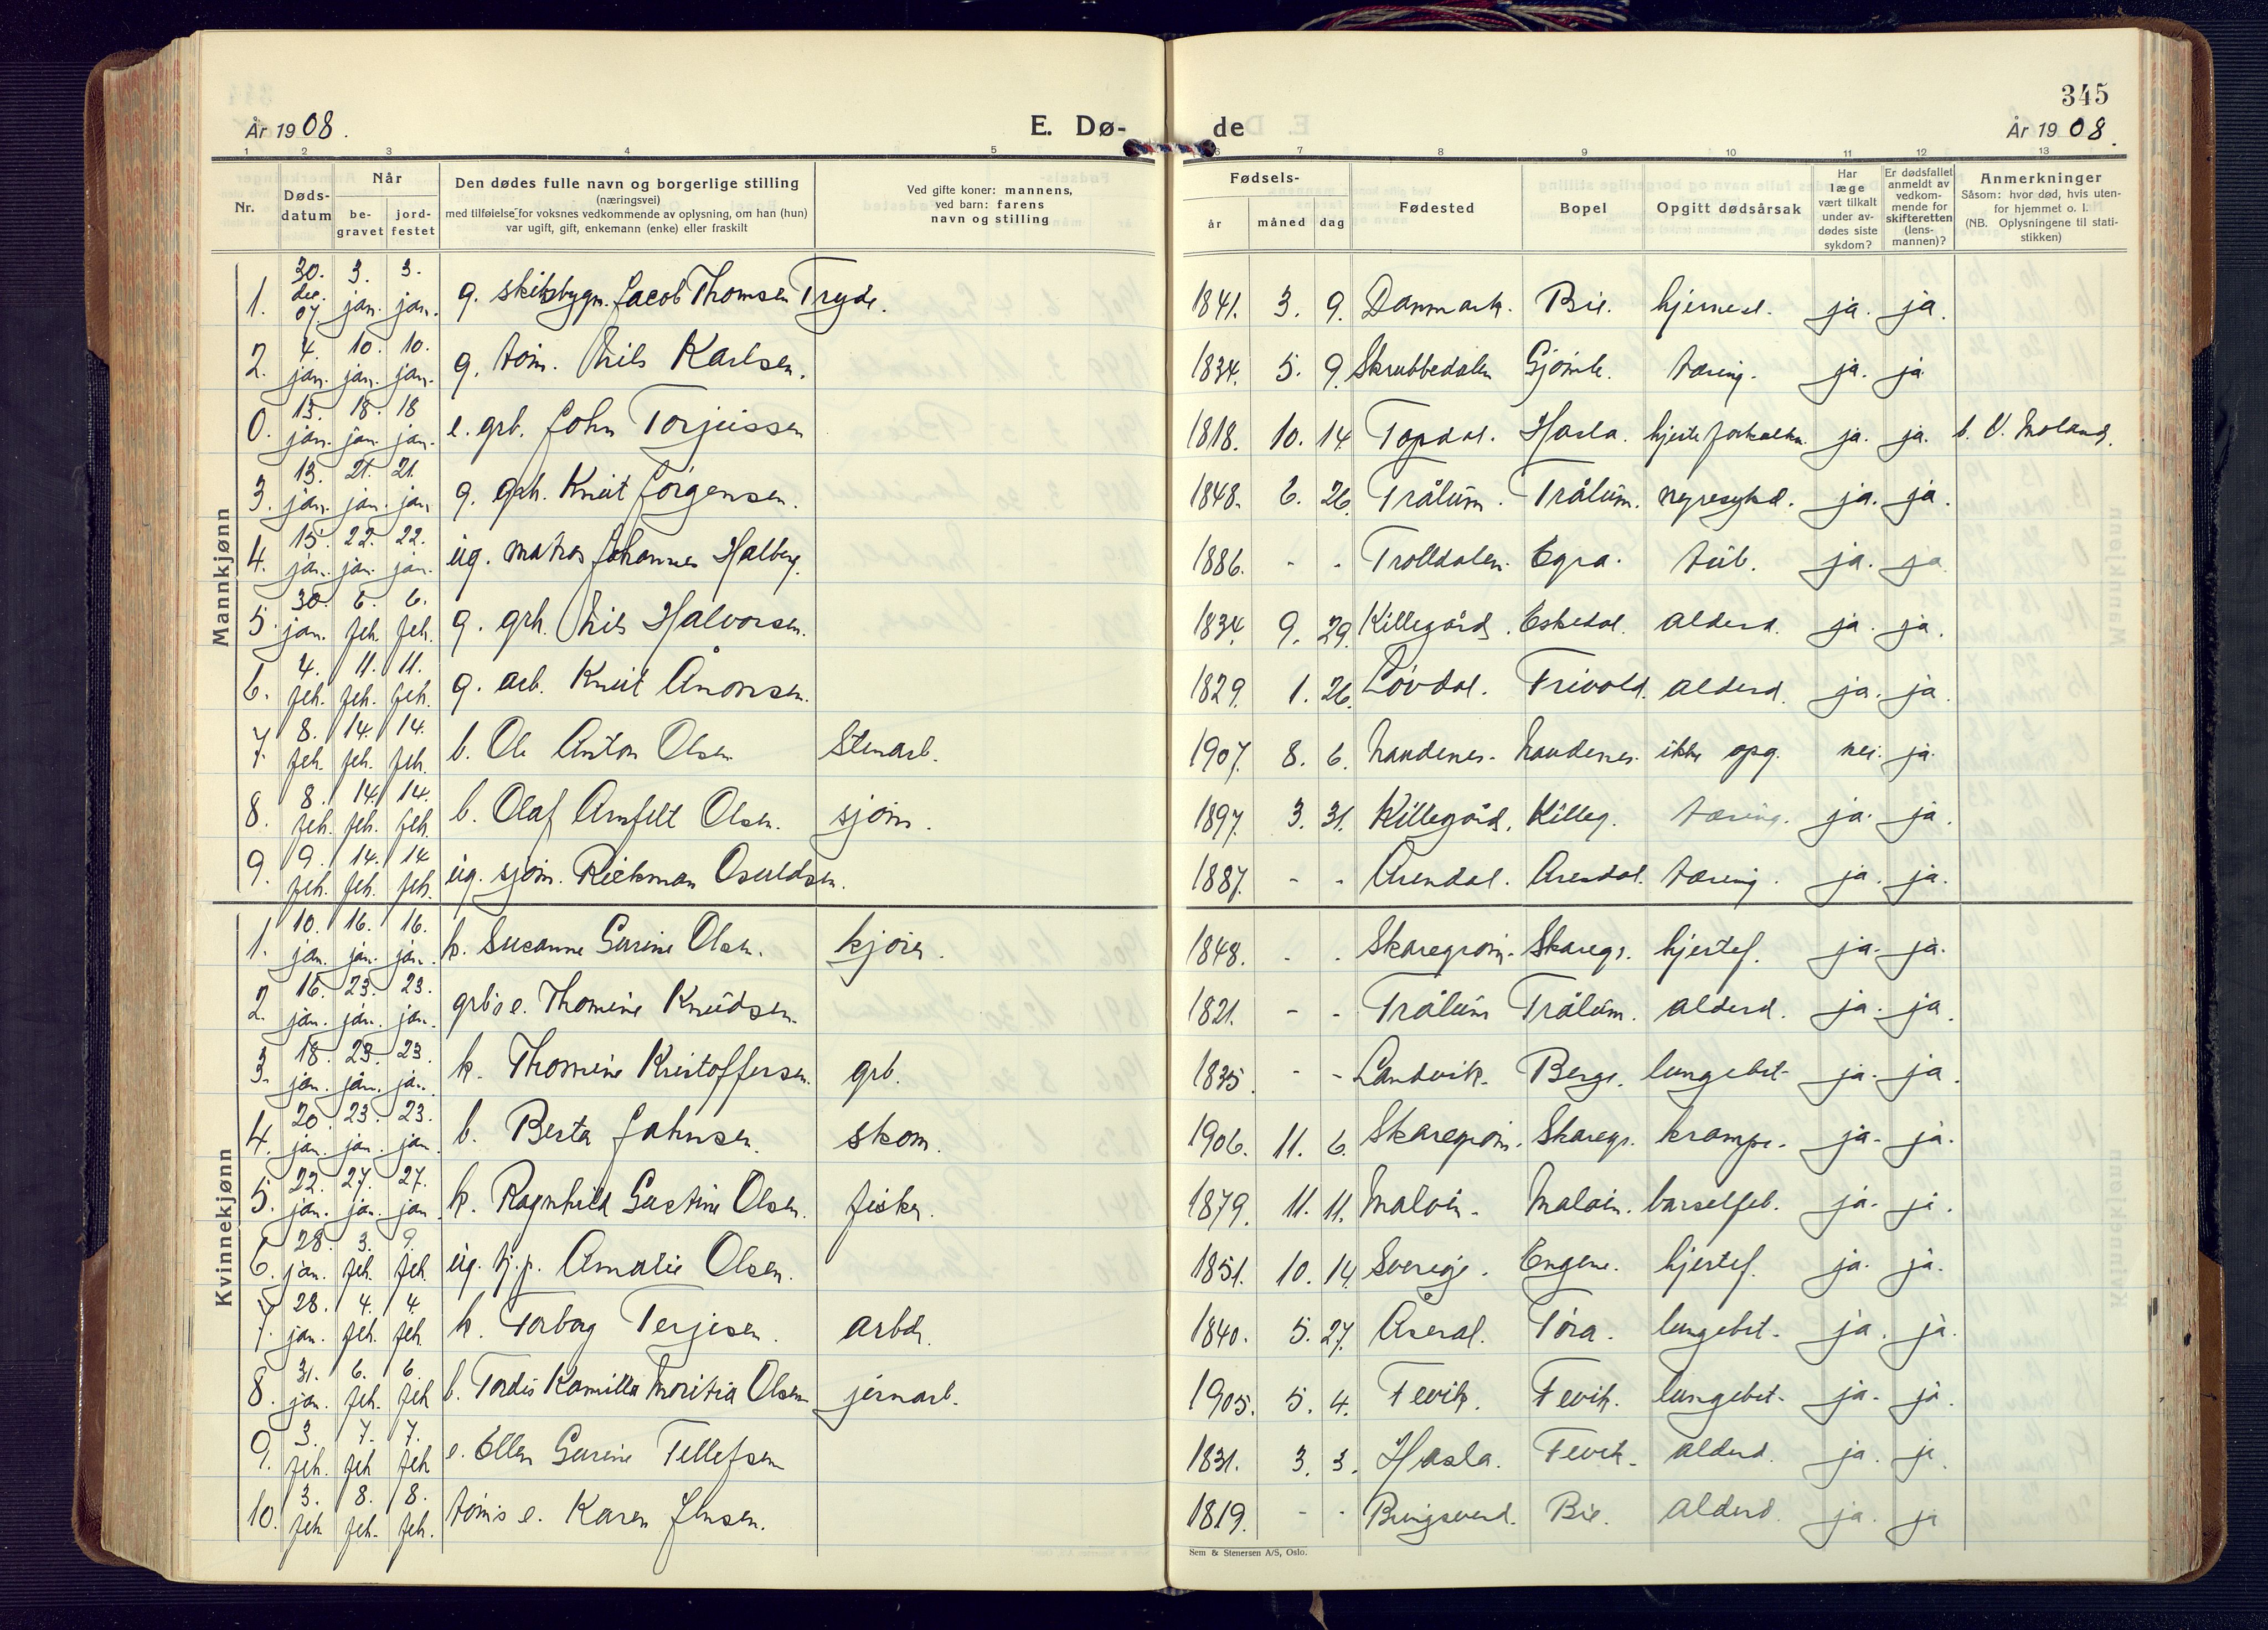 345
År 1908.
E. Dø-
de
År 1908.
1 2 3 4 5
6 7 8 9 10 11 12 13
Nr.
Døds-
datum
Når
be-
gravet
jord-
festet
Den dødes fulle navn og borgerlige stilling
(næringsvei)
med tilføielse for voksnes vedkommende av oplysning, om han (hun)
var ugift, gift, enkemann (enke) eller fraskilt
Ved gifte koner: mannens,
ved barn: farens
navn og stilling
Fødsels-
år måned dag
Fødested
Bopel
Opgitt dødsårsak
Har
læge
vært tilkalt
under av-
dødes siste
sykdom?
Er dødsfallet
anmeldt av
vedkom-
mende for
skifteretten
(lens-
mannen)?
Anmerkninger
Såsom: hvor død, hvis uten-
for hjemmet o. l.
(NB. Oplysningene til stati-
stikken)
Mannkjønn
1. 30. dec. 07 3. jan. 3. jan. g. skibsbygm. Jacob Thomsen Tryde. 1841. 3. 9. Danmark. Bie. hjernesl. ja. ja.
2. 4. jan. 10. jan. 10. jan. g. tøm. Nils Karlsen. 1834. 5. 9. Skrubbedalen Gjømle. tæring. ja. ja
0. 13. jan. 18. jan. 18 jan. e. grb. John Torjussen 1818. 10. 14 Topdal. Hasla. hjerteforkalkn. ja. ja. b. V. Moland.
3. 13. jan. 21. jan. 21. jan g. grh. Knut Jørgensen. 1848. 6. 26. Trålum. Trålum. nyresykd. ja. ja.
4. 15. jan. 22. jan. 22. jan. ug. matros Johannes Halberg. 1886. - - Trolldalen. Egra. tub. ja. ja
5. 30. jan. 6. feb. 6. feb. g. grh. Nils Halvorsen. 1834. 9. 29. Killegård. Eskedal. alderd. ja. ja.
6. 4. feb. 11. feb. 11. feb. g. arb. Knut Ånonsen. 1829. 1. 26. Løvdal. Frivold. alderd. ja. ja.
7. 8. feb. 14. feb. 14. feb. b. Ole Anton Olsen Stenarb. 1907. 8. 6. Naudenes. Naudenes. ikke opg. nei. ja.
8. 8. feb. 14. feb. 14. feb. b. Olaf Arnfelt Olsen. sjøm. 1897. 3. 31. Killegård. Killeg. tæring. ja. ja.
9. 9. feb. 14. feb. 14 feb. ug. sjøm. Rickman Osuldsen. 1887. - - Arendal. Arendal. tæring. ja. ja.
Kvinnekjønn
1. 10. jan. 16. jan. 16. jan. k. Susanne Gurine Olsen. kjører. 1848. - - Skaregrøm. Skaregr. hjertef. ja. ja.
2. 16. jan. 23. jan. 23. jan. grb's e. Thomine Knudsen. 1821. - - Trålum Trålum. alderd. ja. ja.
3. 18. jan. 23. jan. 23. jan. k. Thomine Kristoffersen. grb. 1835. - - Landvik. Berge. lungebet. ja. ja.
4. 20. jan. 23. jan. 23. jan. b. Berta Johnsen. skom. 1906. 11. 6. Skaregrøm. Skaregr. krampe. ja. ja.
5. 22. jan. 27. jan. 27. jan. k. Ragnhild Gustine Olsen. fisker. 1879. 11. 11. Maløen. Maløen. barselfeb. ja. ja.
6. 28. jan. 3. feb. 9. feb. ug. tj.p. Amalie Olsen. 1851. 10. 14. Sverige. Engene. hjertef. ja. ja.
7. 28. jan. 4. feb. 4. feb k. Torborg Terjesen. arbdr. 1840. 5. 27. Åseral. Tøra. lungebet. ja. ja.
8. 31. jan. 6. feb. 6. feb b. Tordis Kamilla Moritia Olsen jernarb. 1905. 5. 4. Fevik. Fevik. lungebet. ja. ja.
9. 3. feb. 7. feb 7. feb e. Ellen Gurine Tellefsen 1831. 3. 3. Hasla. Fevik. alderd. ja. ja.
10. 3. feb 8. feb. 8. feb. tøm's e. Karen Jensen. 1819. - - Bringsverd. Bie. alderd. ja. ja
Sem & Stenersen A/S, Oslo.